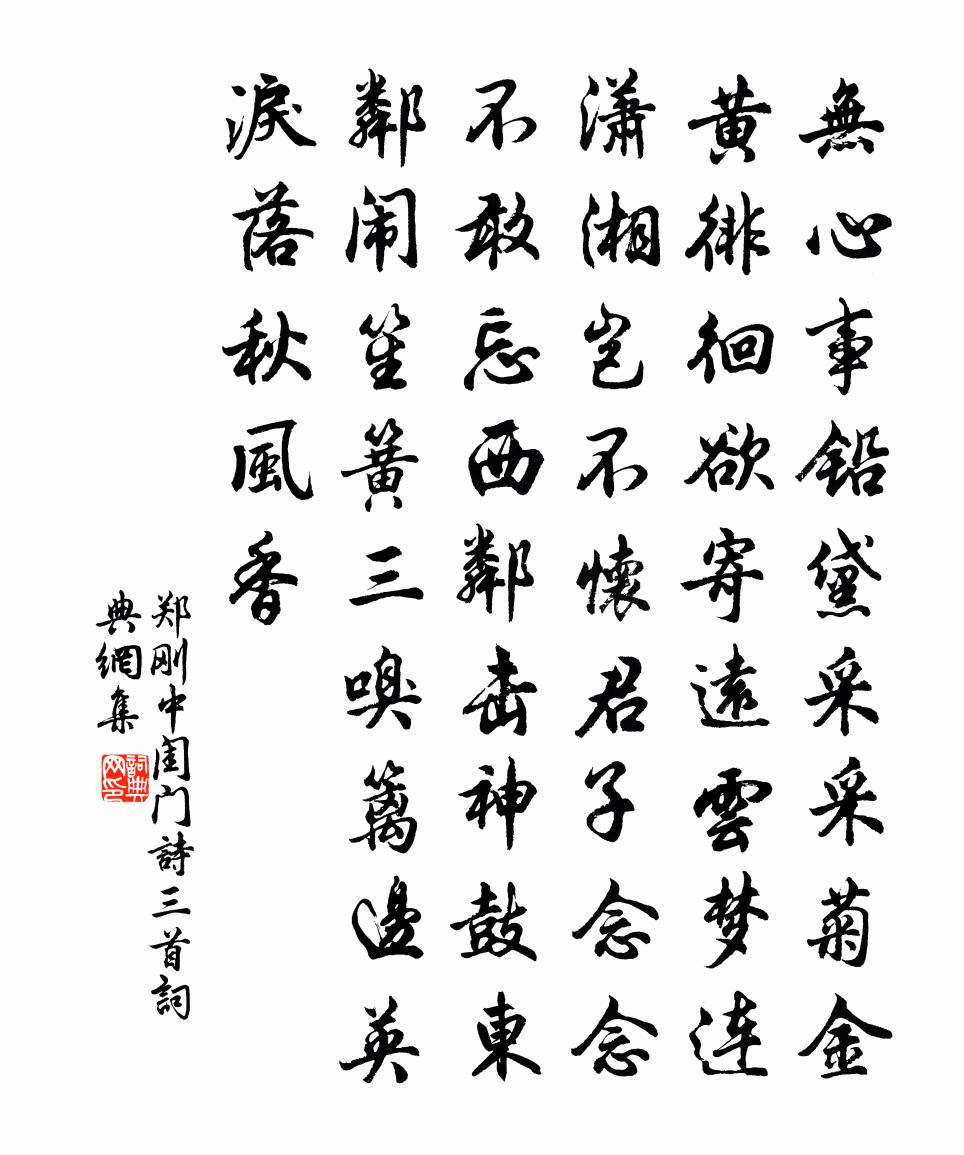 無心事鉛黛采采菊金
黄徘徊欲寄遠雲梦连
潇湘岂不懷君子念念
不敢忘西鄰击神鼓東
鄰闹笙簧三嗅篱邊英
淚落秋風香
郑刚中闺门詩三首詞
典網集
詞典网印